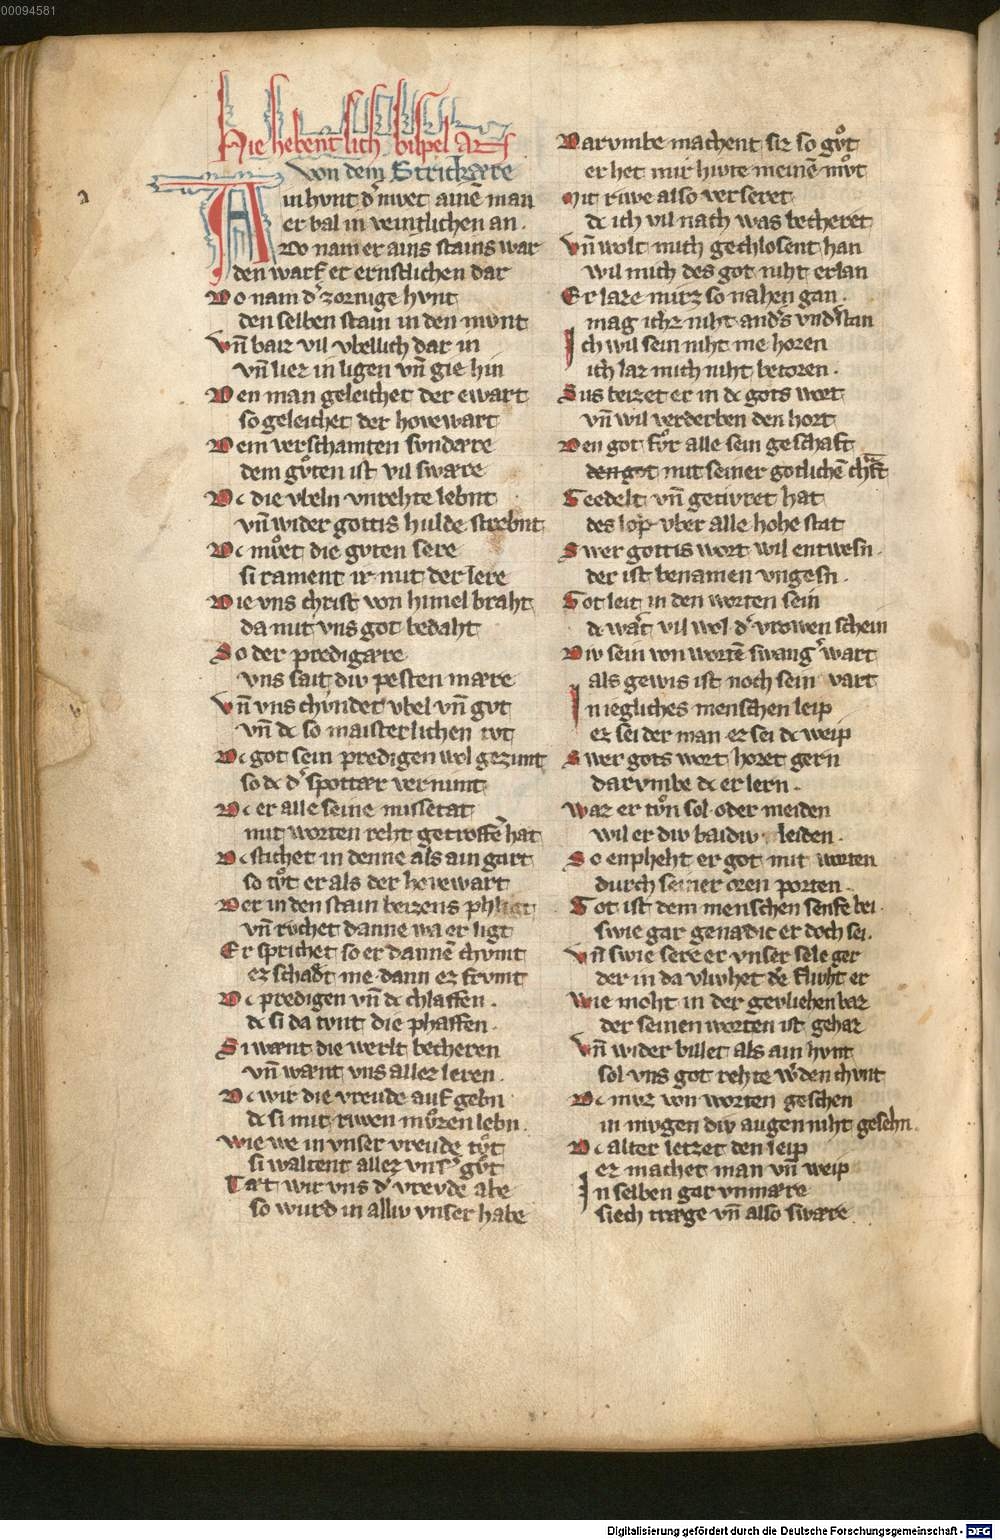 00094581
Hie hebent sich bispel an
von dem Strickære
Ain hvnt d᾽ mvet ainē man
er bal in veintlichen an.
Do nam er ains stains war
den warf er ernstlichen dar
Do nam d᾽ zornige hvnt
den selben stain in den mvnt
Vn̄ baiz vil vbellich dar in
vn̄ liez in ligen vn̄ gie hin
Den man geleichet der ewart
so geleichet der hovewart
Dem verschamten svndære
dem gvͦten ist vil swære
Dc die vbeln vnrehte lebnt
vn̄ wider gottis hulde strebnt
Dc mvͦet die gvten sere
si rament ir mit der lere
Die vns christ von himel braht
da mit vns got bedaht
So der predigære
vns sait div pesten mære
Vn̄ vns chvndet vbel vn̄ gvt
vn̄ dc so maisterlichen tvt
Dc got sein predigen wol gezimt
so dc d᾽ spottær vernimt
Dc er alle seine missetat
mit worten reht getroffē hat
Dc stichet in denne als ain gart
so tvͦt er als der hovewart
Der in den stain beizens phligt
vn̄ rvchet danne wa er ligt
Er sprichet so er dannē chvmt
ez schadt me dann ez frvmt
Dc predigen vn̄ dc chlaffen.
dc si da tvnt die phaffen.
Si wænt die werlt becheren
vn̄ wænt vns allez leren.
Dc wir die vreude auf gebn
dc si mit riwen mvͦzen lebn.
Wie we in vnser vreude tvͦt
si waltent allez vnsˢ gvͦt
Tæt wir vns d᾽ vrevde abe
so wurd in alliv vnser habe
Darvmbe machent siz so gvͦt
er het mir hivte meinē mvͦt
Mit riwe also verseret
dc ich vil nach was becheret
Vn̄ wolt mich gechlosent han
wil mich des got niht erlan
Er laze mirz so nahen gan.
mag ichz niht andˢs vndˢstan
Ich wil sein niht me horen
ich laz mich niht betoren.
Sus beizet er in dc gots wort
vn̄ wil verderben den hort
Den got fvͦr alle sein geschaft
den got mit seiner gotlichē chraft
Geedelt vn̄ getivret hat
des lop vber alle hohe stat
Swer gottis wort wil entwesn.
der ist benamen vngesn.
Got leit in den worten sein
dc wart vil wol d᾽ vrowen schein
Div sein von wortē swangˢ wart
als gewis ist noch sein vart
In iegliches menschen leip
ez sei der man ez sei dc weip
Swer gots wort horet gern
darvmbe dc er lern.
Waz er tvͦn sol oder meiden
wil er div baidiv leiden.
So enpheht er got mit worten
durch seiner oren porten.
Got ist dem menschen senfte bei
swie gar genadic er doch sei.
Vn̄ swie sere er vnser sele ger
der in da vlivhet dē flivht er
Wie moht in der gevliehen baz
der seinen worten ist gehaz
Vn̄ wider billet als ain hvnt
sol vns got rehte wˢden chvnt
Dc mvz von worten geschen
in mvgen div augen niht gesehn.
Dc alter letzet den leip
ez machet man vn̄ weip
In selben gar vnmære
siech træge vn̄ also swære
Digitalisierung gefördert durch die Deutsche Forschungsgemeinschaft - DFG